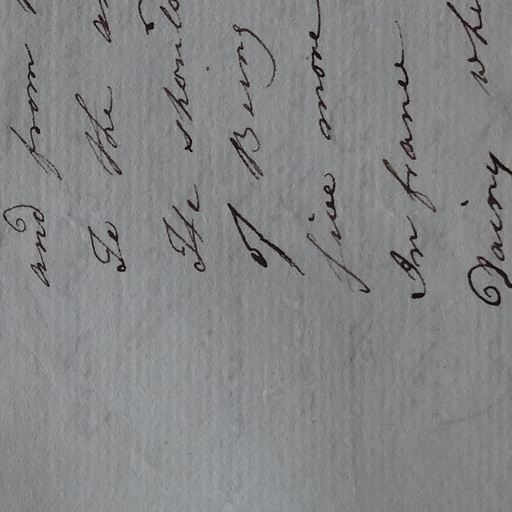 and from
To the
He should
of Being
five more
In france
Dairy whi